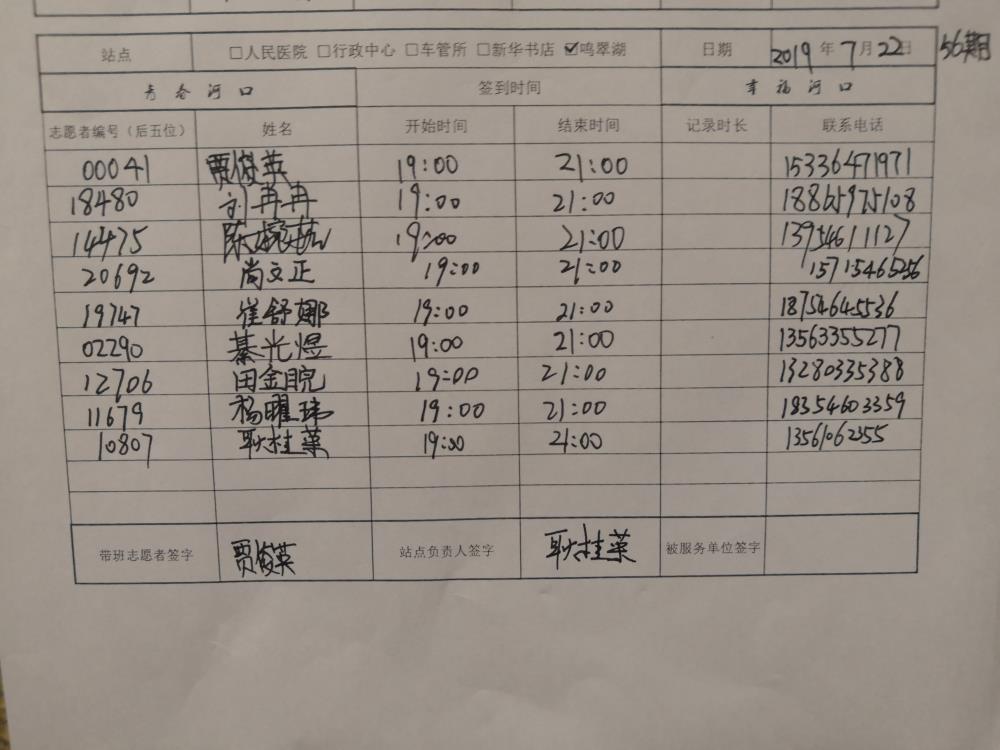 站点 □人民医院 □行政中心 □车管所 □新华书店 ☑鸣翠湖 日期 2019年7月22日 56期
青春河口 签到时间 幸福河口
志愿者编号（后五位） 姓名 开始时间 结束时间 记录时长 联系电话
00041 贾俊英 19:00 21:00 15336471971
18480 刘冉冉 19:00 21:00 18865975108
14475 陈婉 19:00 21:00 13954611127
20692 尚文正 19:00 21:00 15715465256
19747 崔舒娜 19:00 21:00 18754645536
02290 綦光煜 19:00 21:00 13563355277
12706 田金晥 19:00 21:00 13280335388
11679 杨曜玮 19:00 21:00 18354603359
10807 耿桂菜 19:00 21:00 13561062355
带班志愿者签字 贾俊英 站点负责人签字 耿桂菜 被服务单位签字